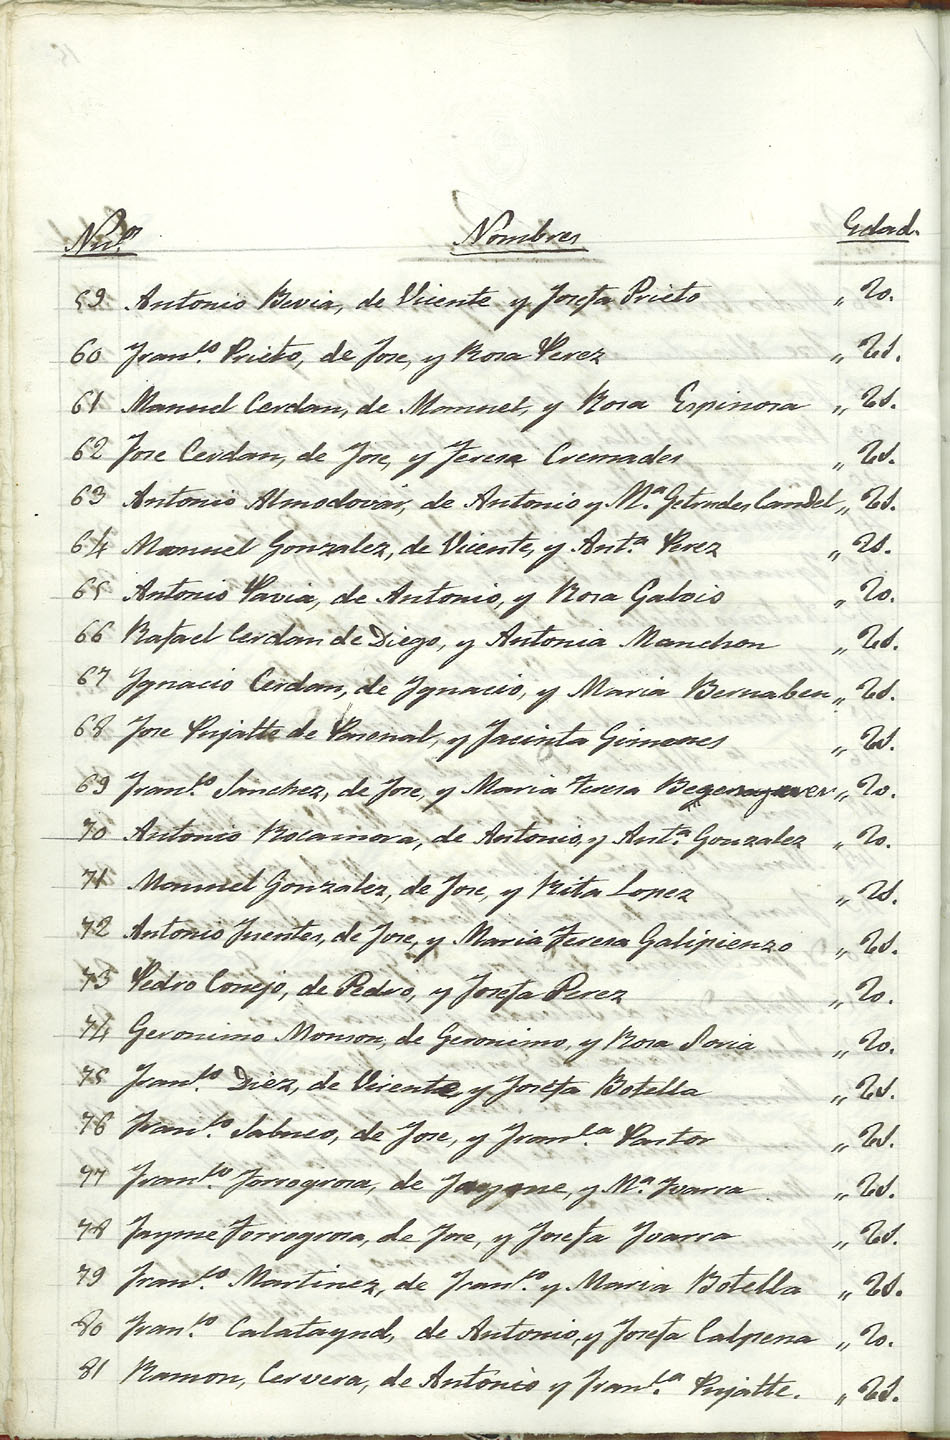 Nu.os Nombres Edad.
59 Antonio Bevia, de Vicente y Josefa Prieto „ 20.
60 Fran.co Prieto, de Jose, y Rosa Perez „ 21.
61 Manuel Cerdan, de Manuel, y Rosa Espinosa „ 21.
62 Jose Cerdan, de Jose, y Teresa Cremades „ 21.
63 Antonio Almodovar, de Antonio y M.a Getrudes Candel „ 21.
64 Manuel Gonzalez, de Vicente, y Ant.a Perez „ 21.
65 Antonio Pavia, de Antonio, y Rosa Galvis „ 20.
66 Rafael Cerdan de Diego, y Antonia Manchon „ 21.
67 Ygnacio Cerdan, de Ygnacio, y Maria Bernabeu „ 21.
68 Jose Pujalte de Pascual, y Jacinta Gimenes „ 21.
69 Fran.co Sanchez, de Jose, y Maria Teresa „ 20.
70 Antonio Rocamora, de Antonio, y Ant.a Gonzalez „ 20.
71 Manuel Gonzalez, de Jose, y Rita Lopez „ 21.
72 Antonio Fuentes, de Jose, y Maria Teresa Galipienzo „ 21.
73 Pedro Conejo, de Pedro, y Josefa Perez „ 20.
74 Geronimo Monson, de Geronimo, y Rosa Soria „ 20.
75 Fran.co Diez, de Vicente y Josefa Botella „ 21.
76 Fran.co Sabuco, de Jose, y Fran.ca Pastor „ 21.
77 Fran.co Torregrosa, de Jayme, y M.a Yvarra „ 21.
78 Jayme Torregrosa, de Jose, y Josefa Yvarra „ 21.
79 Fran.co Martinez, de Fran.co y Maria Botella „ 21.
80 Fran.co Calatayud, de Antonio, y Josefa Calpena „ 20.
81 Ramon, Cervera, de Antonio y Fran.ca Pujalte. „ 21.